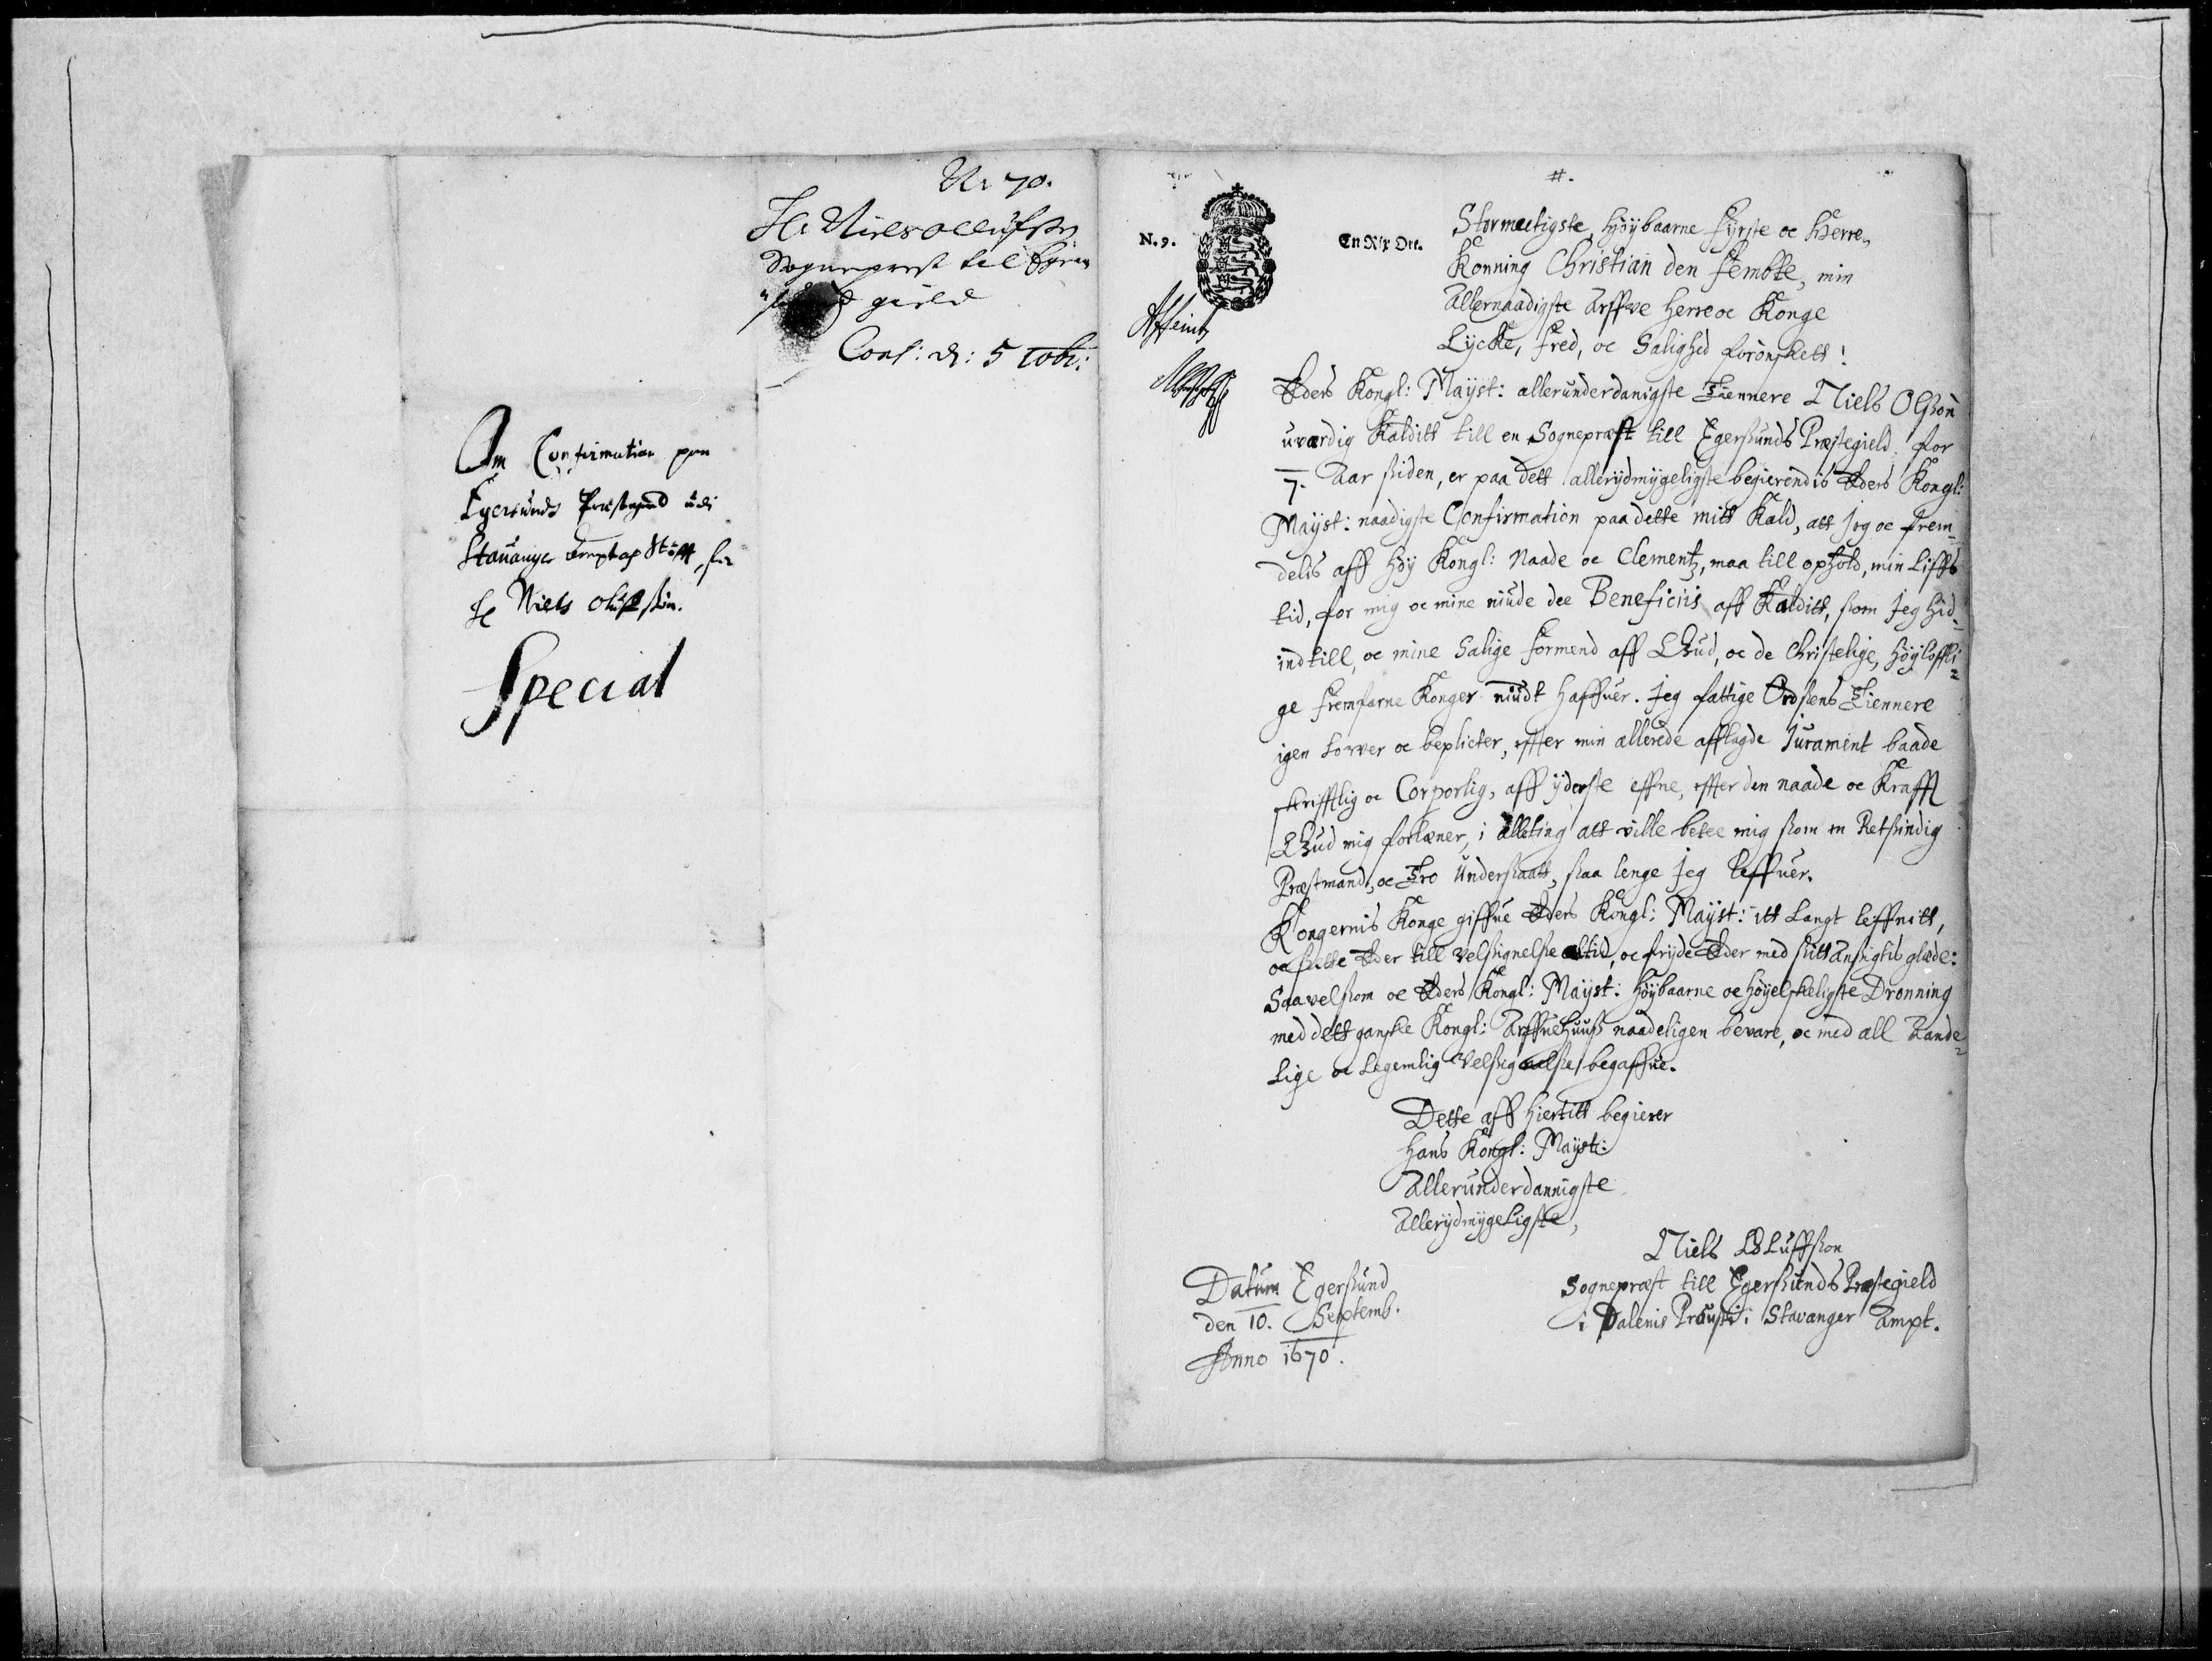 Nr 70.
Hr Niels Olluffsøn
Sogneprest til Egers
gield
Conf: d: 5 10br:
Om Confirmation paa
Egersunds Præstegield udi
Stauanger Ampt, for
Hr Niels Oluffsøn.
Special
N. 9.
En Rix Ort.
Stormectigste, Høÿbaarne Fÿrste oc Herre,
Konning Christian den Fembte, min
Allernaadigste Arffve Herre oc Konge
Lÿcke, Fred, oc Salighed forönskett!
Eders Kongl: Maÿst: allerunderdanigste Tiennere Niels Olßøn
uværdig Kalditt till en Sognepræst till Egerßunds Præstegield, for
7. Aar siden, er paa dett allerÿdmÿgeligste begierendis Eders Kongl:
Maÿst: naadigste Confirmation paa dette mitt Kald, att Jeg oc frem-
delis aff høÿ Kongl: Naade oc Clementz, maa till ophold, min Liffs
tid, for mig oc mine niude dee Beneficiis aff Kalditt, som Jeg hid-
indtill, oc mine Salige Formend aff Gud, oc de Christelige, Høÿloffli-
ge Fremfarne Konger niudt haffuer. Jeg fattige Ordsens Tiennere
igen Lover oc beplicter, effter min allerede afflagde Jurament baade
skrifftlig oc Corporlig, aff ÿderste effne, effter den naade oc Krafft
Gud mig forlæner, i alleting att ville betee mig som en Retsindig
Præstmand, oc Tro Undersaatt, saa lenge Jeg leffuer.
Kongernis Konge giffue Eders Kongl: Maÿst: itt Langt leffnitt,
oc sette Eder till Velsignelse altid, oc frÿde Eder med sitt Ansigtis glæde:
Saavelsom oc Eders Kongl: Maÿst: Høÿbaarne oc Høÿelskeligste Dronning
med dett ganske Kongl: Arffuehuuß naadeligen bevare, oc med all Aande-
Lige oc Legemlig Velsignelse begaffue.
Dette aff hiertitt begierer
Hans Kongl: Maÿst:
Allerunderdannigste
Allerÿdmÿgeligste,
Niels Oluffsøn
Sognepræst till Egersunds Præstegield
i Dalenis Proustie i Stavanger Ampt.
Datum Egersund
den 10. Septemb.
Anno 1670.